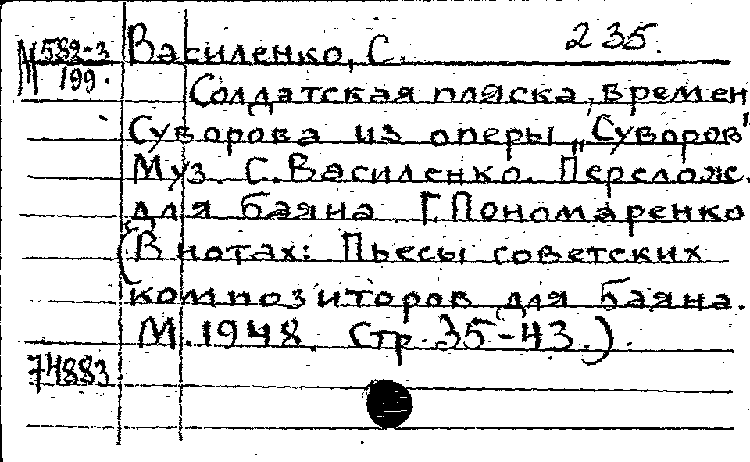 235.
М 582-3
199.
Василенко, С.
Солдатская пляска времен
Суворова из оперы „Суворов"
Муз. С. Василенко. Перелож.
для баяна Г. Пономаренко
(В нотах: Пьесы советских
композиторов для баяна.
М. 1948. Стр. 35-43.).
74883